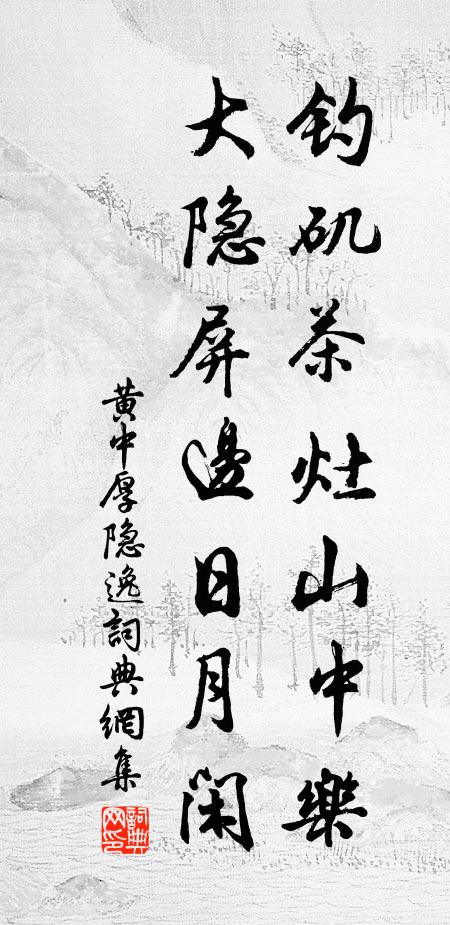 钓矶茶灶山中樂
大隐屏邊日月闲
黄中厚隐逸詞典網集
詞典網印